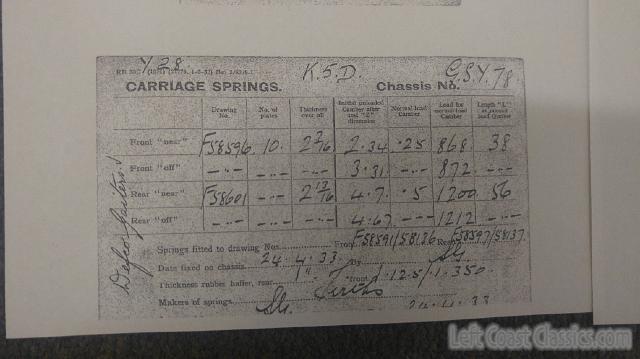 Y 28. K.S.D. G.S.Y. 78
CARRIAGE SPRINGS. Chassis No.
Drawing No. No. of plates Thickness over all Initial unloaded Camber after test "Z" dimension Normal load Camber Load for normal load Camber Length "L" at normal load Camber
Front "near" F58596 10. 2 3/16 2.34 .25 868 38
Front "off" -"- -"- -"- 3.31 -"- 872 -"-
Rear "near" F58601 -"- 2 13/16 4.7. .5 1200 56
Rear "off" -"- -"- -"- 4.67 -"- 1212 -"-
Springs fitted to drawing Nos. Front F58591/58136 Rear F58597/58137
Date fixed on chassis 24.4.33 By
Thickness rubber buffer, rear 1" front 1.125/1.350
Makers of springs
24.4.33
Left Coast Classics.com